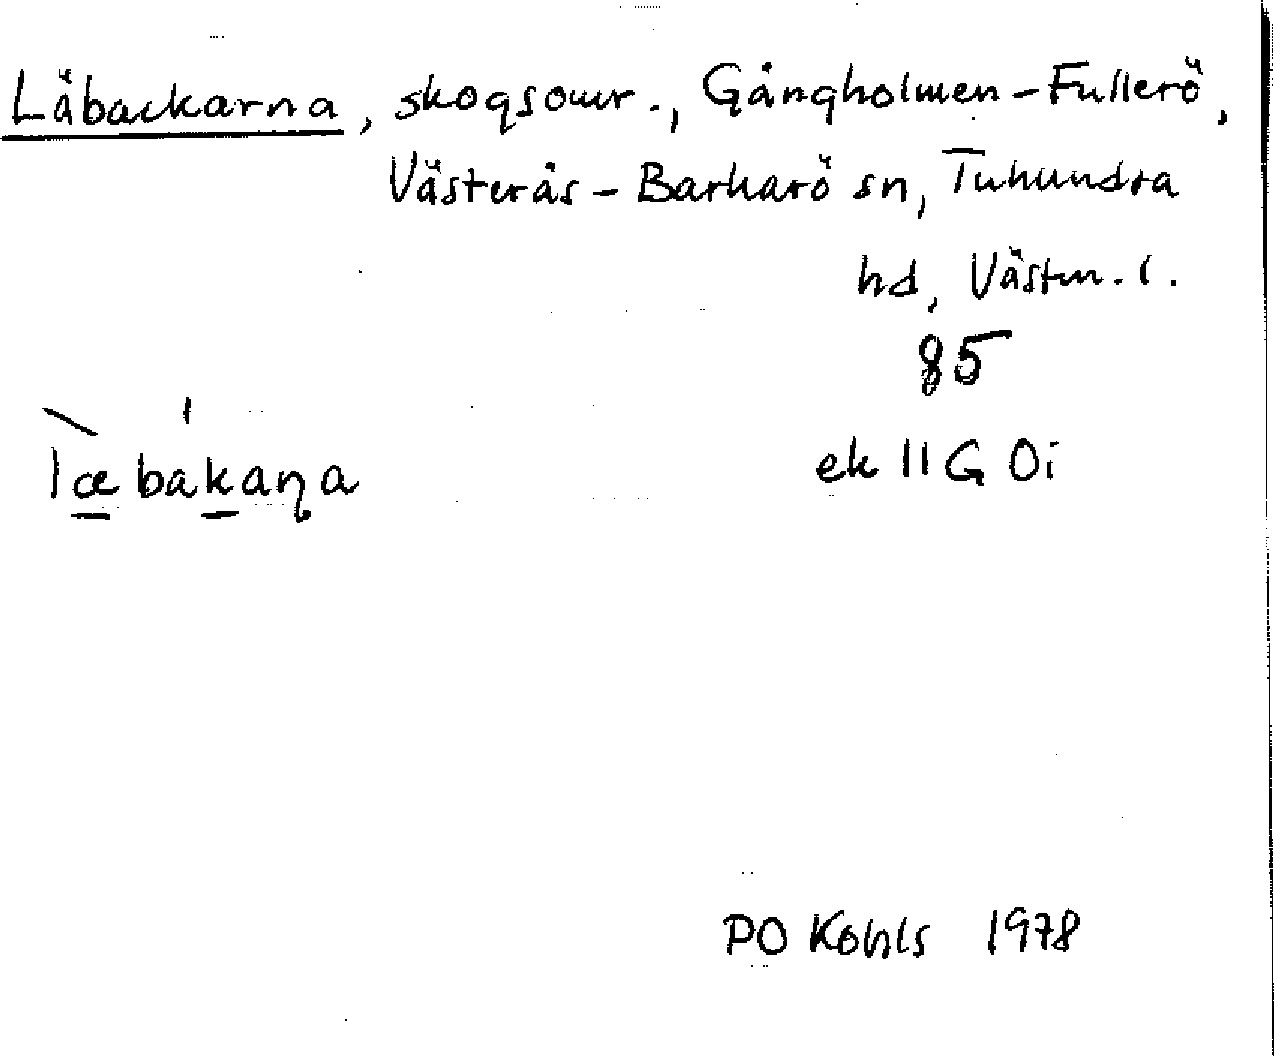 Läbackarna, skogsomr., Gångholmen-Fullerö,
Västerås-Barkarö sn, Tuhundra
hd, Västm. l.
85
ek 11G 0i
læbakaɳa
PO Kohls 1978